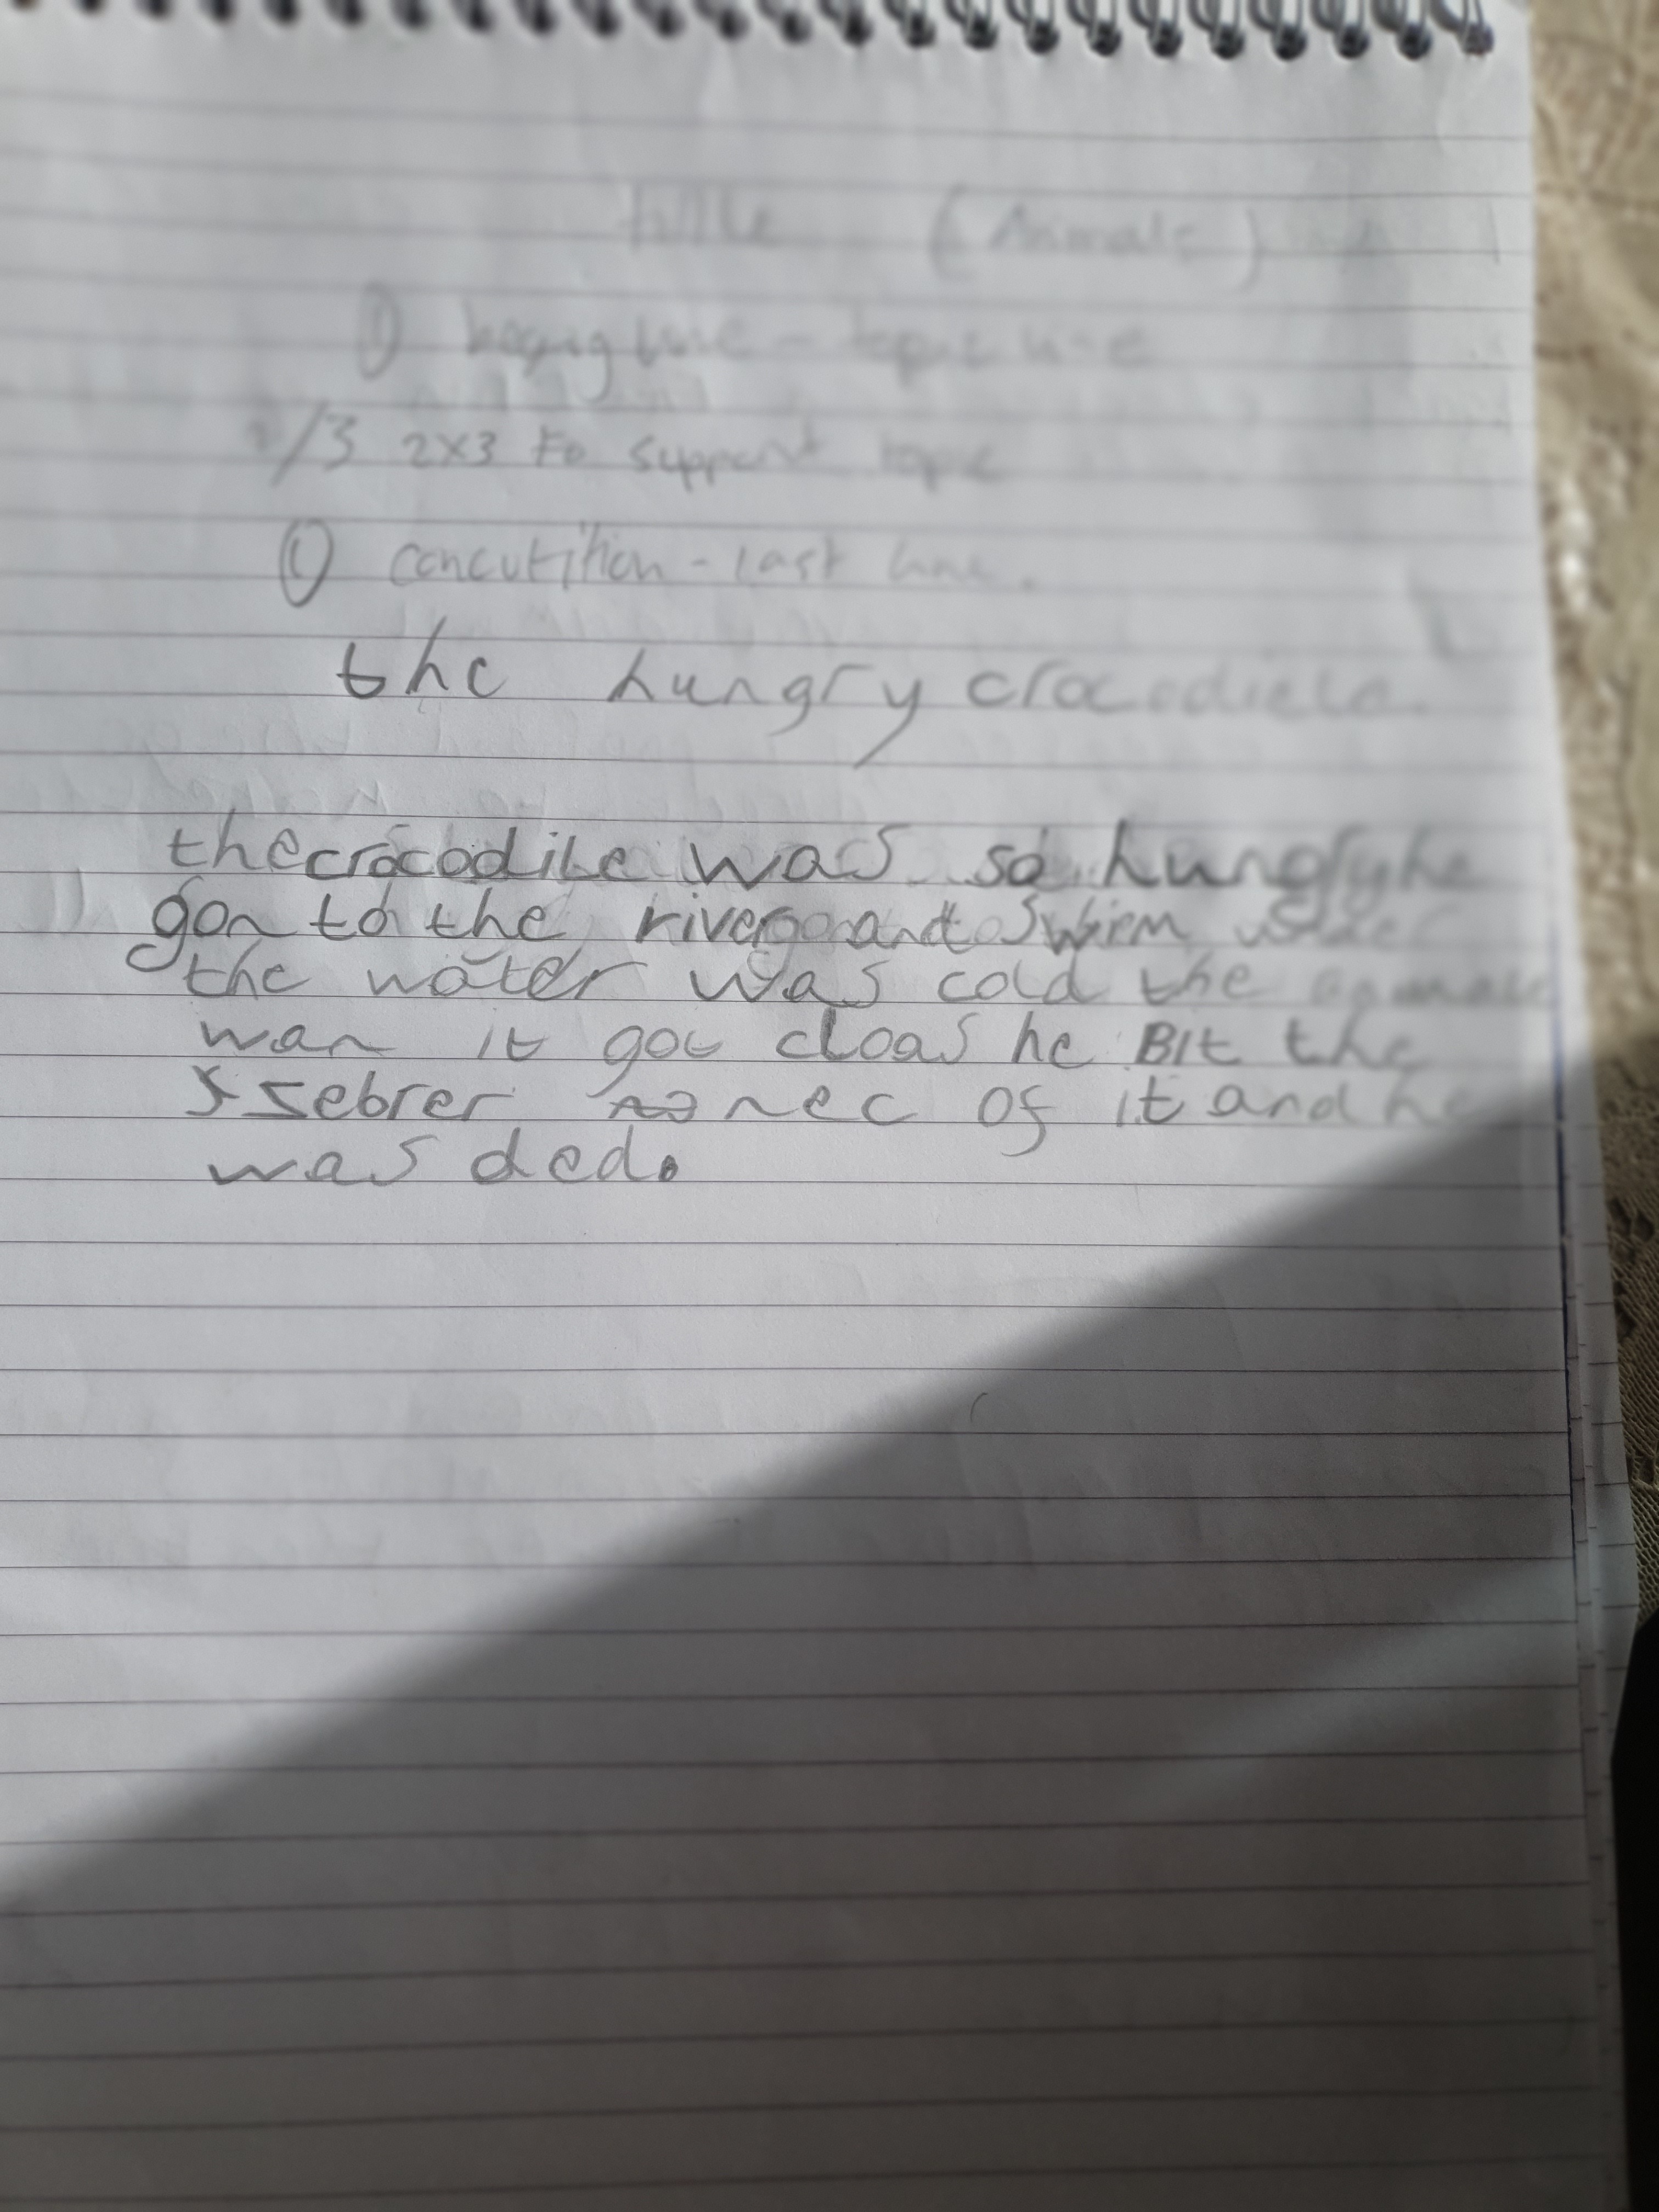 title (Animals)
① line - topic line
/3 2x3 to support topic
① concutition - last line.
the hungry crocodiele.
thecrocodile was so hungryhe
gon to the river and Swim
the water was cold the
wan it got cloas he BIt the
zebrer nec of it and he
was ded.